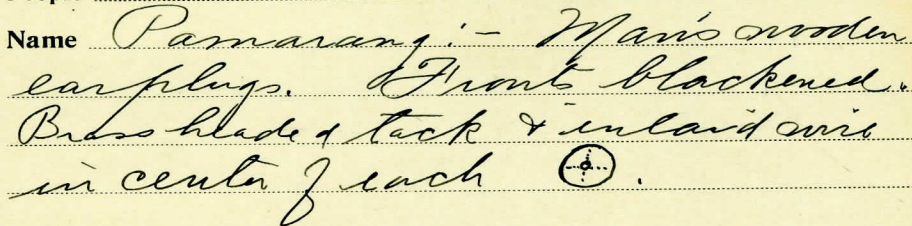 Name Pamarang:- Man's wooden
earplugs. Fronts blackened.
Brass headed tack & inlaid wire
in center of each .